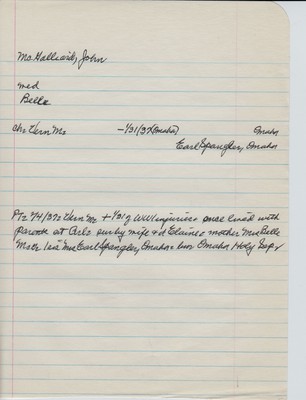 Mc.Halliard, John
med
Belle
ch: Vern Mc -1/31/37(Omaha) Omaha
Earl Spangler, Omaha
2/4/37: Vern Mc + 1/31 of WWI injuries: once lived with
parents at Arlo surv by wife + d Elaine + mother Mrs Belle
Mc + sis Mrs Earl Spangler, Omaha + bur Omaha Holy Sep.